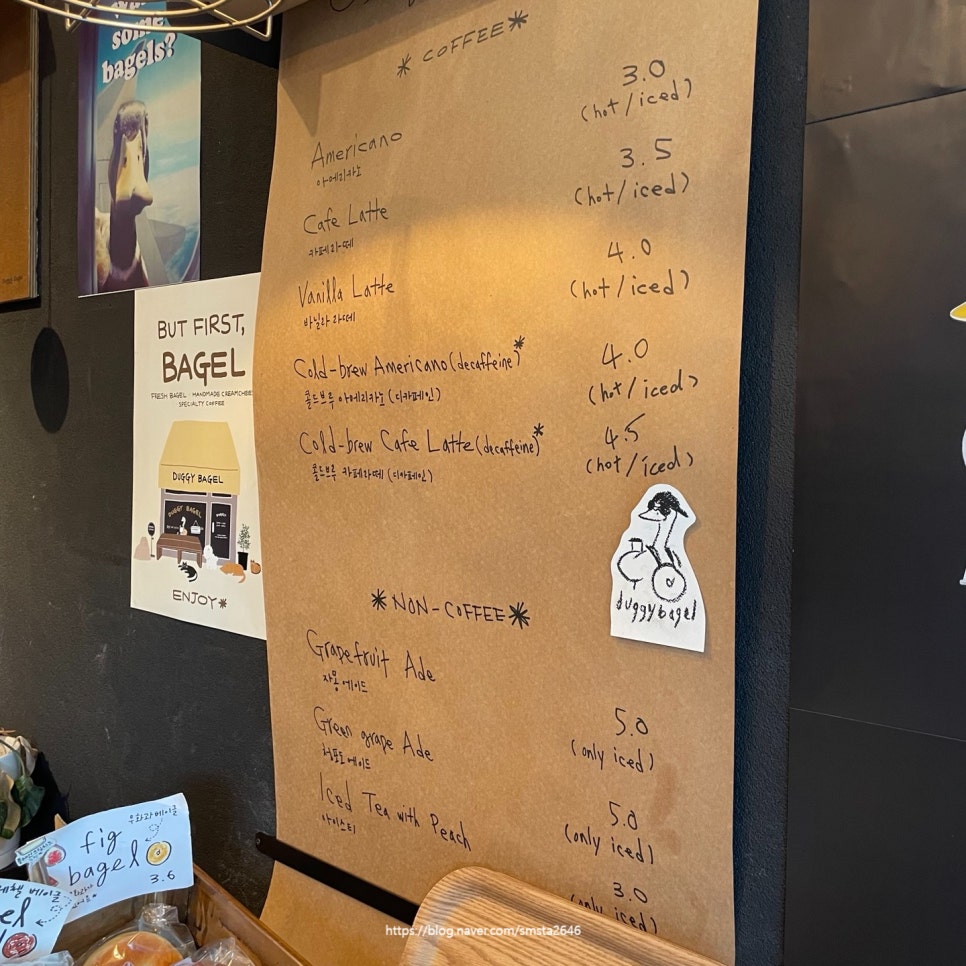 some
bagels?
BUT FIRST,
BAGEL
FRESH BAGEL · HANDMADE CREAMCHEE
SPECIALTY COFFEE
DUGGY BAGEL
DUGGY BAGEL
ENJOY*
* COFFEE *
Americano 3.0
아메리카노 (hot/iced)
Cafe Latte 3.5
카페라떼 (hot/iced)
Vanilla Latte 4.0
바닐라 라떼 (hot/iced)
Cold-brew Americano (decaffeine)* 4.0
콜드브루 아메리카노 (디카페인) (hot/iced)
Cold-brew Cafe Latte (decaffeine)* 4.5
콜드브루 카페라떼 (디카페인) (hot/iced)
duggybagel
* NON-COFFEE *
Grapefruit Ade 5.0
자몽에이드 (only iced)
Green grape Ade 5.0
청포도에이드 (only iced)
Iced Tea with Peach 3.0
아이스티 (only iced)
무화과베이글
fig
bagel
3.6
베이글
https://blog.naver.com/smsta2646